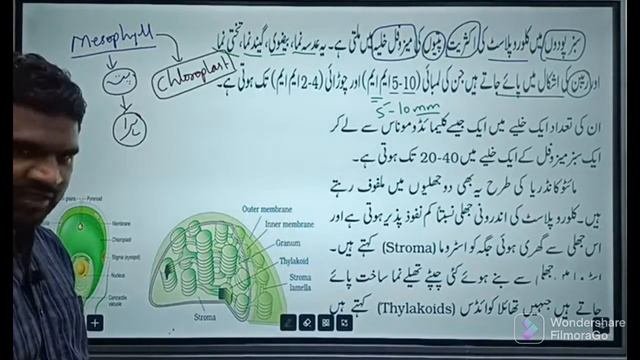 سبز پودوں میں کلوروپلاسٹ کی اکثریت پتیوں کی میزوفل خلیہ میں ملتی ہے۔ یہ عدسہ نما، بیضوی، گیند نما، تختی نما
اور ربن کی اشکال میں پائے جاتے ہیں جن کی لمبائی (5-10 ایم ایم) اور چوڑائی (2-4 ایم ایم) تک ہوتی ہے۔
ان کی تعداد ایک خلیے میں ایک جیسے کلیمائڈوموناس سے لے کر
ایک سبز میزوفل کے ایک خلیے میں 20-40 تک ہوتی ہے۔
مائٹوکانڈریا کی طرح یہ بھی دو جھلیوں میں ملفوف رہتے
ہیں۔ کلوروپلاسٹ کی اندرونی جھلی نسبتاً کم نفوذ پذیر ہوتی ہے اور
اس جھلی سے گھری ہوئی جگہ کو اسٹروما (Stroma) کہتے ہیں۔
سے بنے ہوئے کئی چپٹے تھیلے نما ساخت پائے
جاتے ہیں جنہیں تھائلاکوائڈس (Thylakoids) کہتے ہیں
Mesophyll
Chloroplast
5-10mm
Pyrenoid
Membrane
Chloroplast
Stigma (eyespot)
Nucleus
Contractile vacuole
Outer membrane
Inner membrane
Granum
Thylakoid
Stroma lamella
Stroma
Wondershare
FilmoraGo